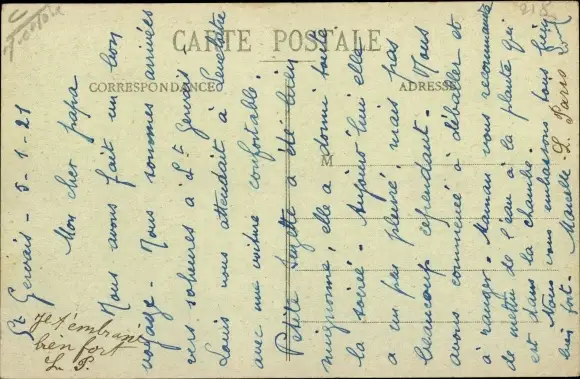 CARTE POSTALE
CORRESPONDANCE
ADRESSE
M
St Gervais - 5-1-21
Mon cher papa
Nous avons fait un bon
voyage. Nous sommes arrivées
vers 5 heures à St Gervais.
Louis nous attendait à
avec une voiture confortable.
Petite Suzette a été bien
mignonne, elle a dormi toute
la soirée. Aujourd'hui elle
a un peu pleuré mais pas
beaucoup cependant. Nous
avons commencé à déballer et
à ranger. Maman vous recommande
de mettre de l'eau à la plante qui
est dans la chambre.
Nous vous embrassons tous
bien fort. Marcelle
L. Paris
Je t'embrasse
bien fort
L. P.